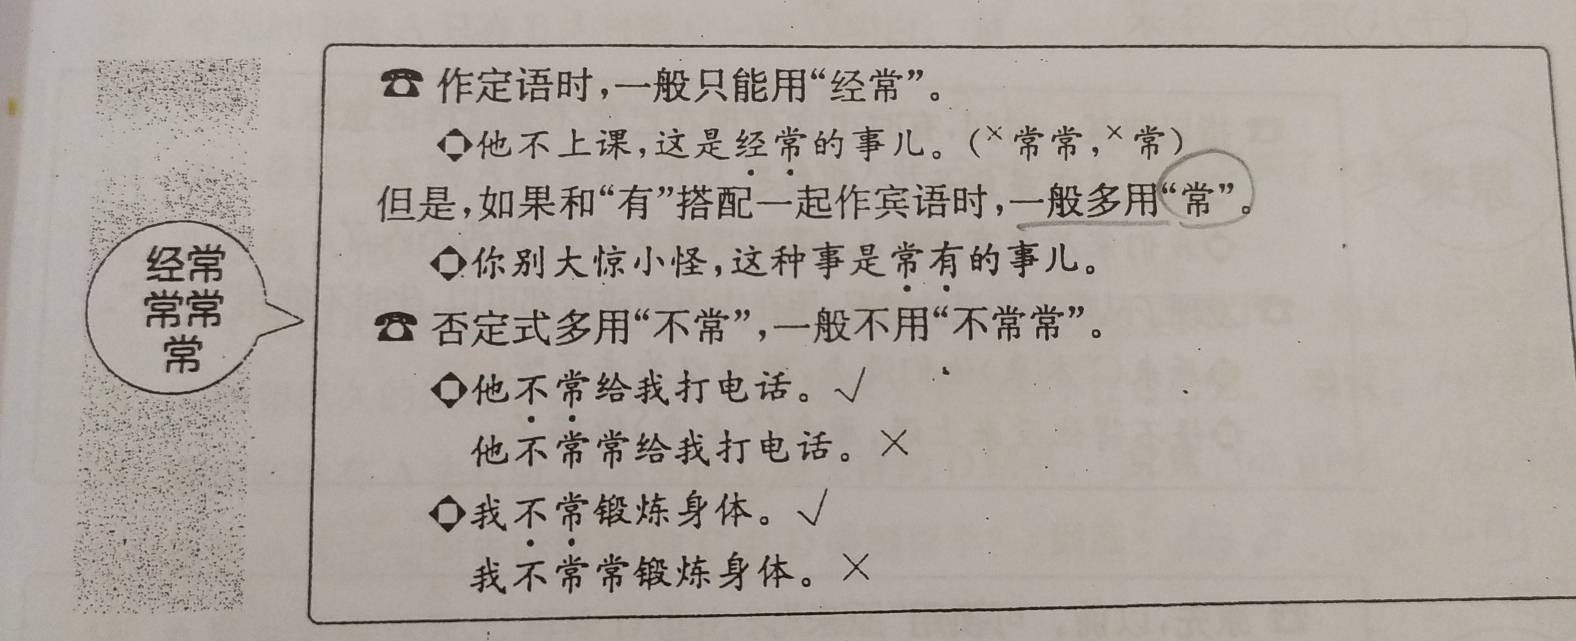 经常
常常
常
☎ 作定语时,一般只能用“经常”。
◇他不上课,这是经常的事儿。(×常常,×常)
但是,如果和“有”搭配一起作宾语时,一般多用“常”。
◇你别大惊小怪,这种事是常有的事儿。
☎ 否定式多用“不常”,一般不用“不常常”。
◇他不常给我打电话。√
他不常常给我打电话。×
◇我不常锻炼身体。√
我不常常锻炼身体。×